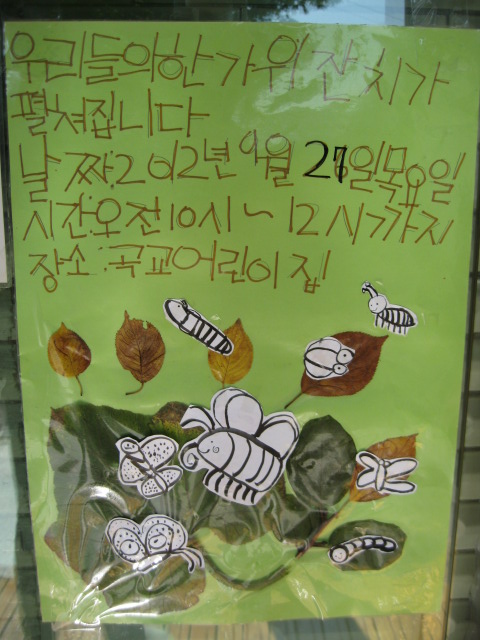 우리들의한가위잔치가
펼쳐집니다
날짜:2012년 9월 27일목요일
시간:오전10시~12시까지
장소:곡교어린이집